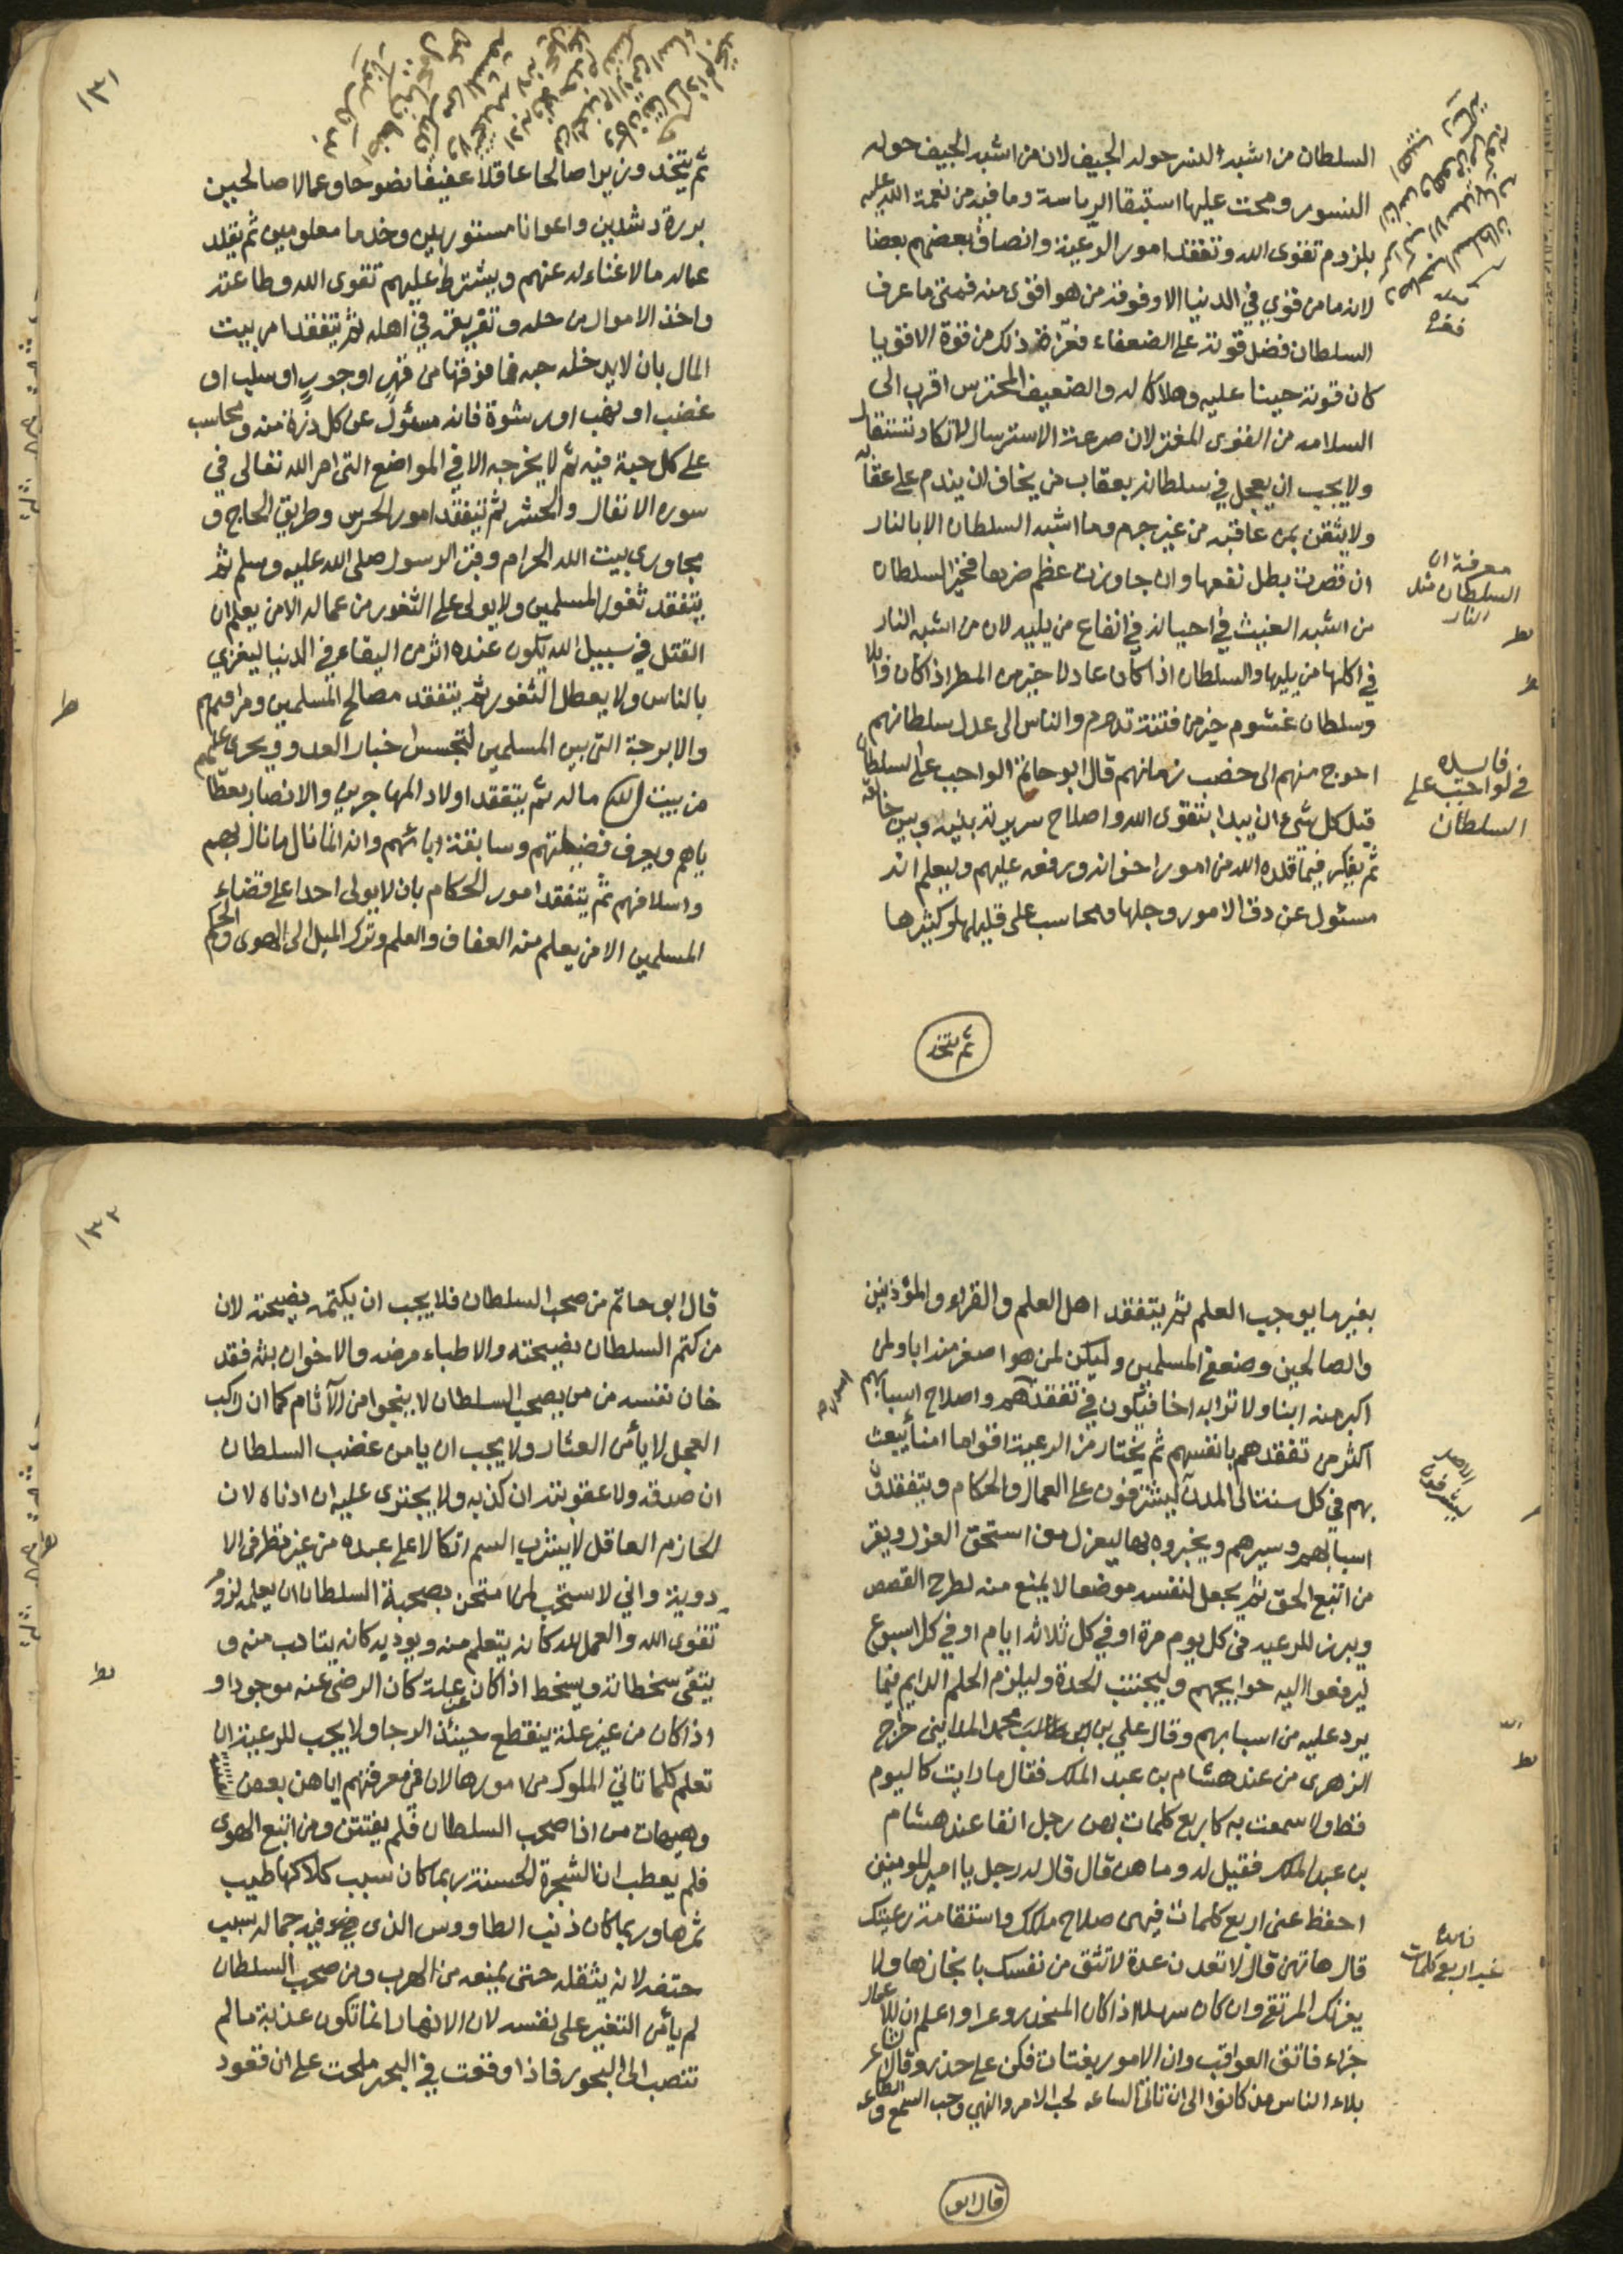 السلطان من اشبه النسر حوله الجيف لان من اشبه الجيف حوله
النسور ومحث عليها استبقا الرياسة وما فيه من نعمة الله عليه
بلزوم تقوى الله وتفقد امور الرعية وانصاف بعضهم بعضا
لانه ما من قوي في الدنيا الا وفوقه من هو اقوى منه فمتى ما عرف
السلطان فضل قوته على الضعفاء فغره ذلك من قوة الاقويا
كان قوته حينا عليه وهلاكا له والضعيف المحترس اقرب الى
السلامه من القوى المغتر لان صرعة الاسترسال لا تكاد تستقال
ولا يجب ان يعجل في سلطانه بعقاب من يخاف ان يندم على عقابه
ولا يثقن بمن عاقبه من غير جرم وما اشبه السلطان الا بالنار
ان قصرت بطل نفعها وان جاوزت عظم ضرها فخير السلطان
من اشبه الغيث في احيانه في انفاع من يليه لا من اشبه النار
في اكلها من يليها والسلطان اذا كان عادلا خير من المطر اذا كان وابلا
وسلطان غشوم خير من فتنة تدوم والناس الى عدل سلطانهم
احوج منهم الى خصب زمانهم قال ابو حاتم الواجب على السلطان
قبل كل شئ ان يبدا بتقوى الله واصلاح سريرته بينه وبين خالقه
ثم يفكر فيما قلده الله من امور اخوانه ورفعه عليهم وليعلم انه
مسئول عن دق الامور وجلها ومحاسب على قليلها وكثيرها
معرفة ان
السلطان مثل
النار
فايده
في لواجب على
السلطان
ثم يتخذ
١٣١
ثم يتخذ وزيرا صالحا عاقلا عفيفا نضوحا وعمالا صالحين
بررة رشدين واعوانا مستورين وخدما معلومين ثم يقلد
عماله ما لا غناء له عنهم ويشترط عليهم تقوى الله وطاعته
واخذ الاموال من حله وتفريقه في اهله ثم يتفقد امر بيت
المال بان لا يدخله حبه فما فوقها من قهر او جور او سلب او
غضب او نهب او رشوة فانه مسئول عن كل ذرة منه ومحاسب
على كل حبة فيه ثم لا يخرجه الا في المواضع التى امر الله تعالى في
سوره الانفال والحشر ثم يتفقد امور الحرس وطريق الحاج و
مجاورى بيت الله الحرام وقبر الرسول صلى الله عليه وسلم ثم
يتفقد ثغور المسلمين ولا يولى على الثغور من عماله الا من يعلم ان
القتل في سبيل الله يكون عنده اثر من البقاء في الدنيا ليغزي
بالناس ولا يعطل الثغور ثم يتفقد مصالح المسلمين ومرافقهم
والابرجة التى بين المسلمين لتجسس اخبار العدو ويجرى عليهم
من بيت المال ماله ثم يتفقد اولاد المهاجرين والانصار بعطا
ياهم ويعرف فضيلتهم وسابقة ابائهم وانه انما نال ما نال بهم
واسلافهم ثم يتفقد امور الحكام بان لا يولى احدا على قضاء
المسلمين الا من يعلم منه العفاف والعلم وترك الميل الى الهوى والحكم
بغير ما يوجب العلم ثم يتفقد اهل العلم والقراء والمؤذنين
والصالحين وضعفى المسلمين وليكن لمن هو اصغر منه ابا ولمن
اكبر منه ابنا ولاترابه اخا فيكون في تفقدهم واصلاح اسبابهم
اكثر من تفقدهم بانفسهم ثم يختار من الرعية اقواما امنا يبعث
بهم في كل سنة الى المدن ليشرفون على العمال والحكام ويتفقدون
اسبابهم وسيرهم ويخبروه بها ليعزل من استحق العزل ويقر
من اتبع الحق ثم يجعل لنفسه موضعا لا يمنع منه لطرح القصص
ويبرز للرعيه في كل يوم مرة او في كل ثلاثه ايام او في كل اسبوع
ليرفعوا اليه حوايجهم وليجتنب الحدة وليلزم الحلم الدايم فيما
يرد عليه من اسبابهم وقال علي بن محمد المدايني خرج
الزهرى من عند هشام بن عبد الملك فقال ما رايت كاليوم
قط ولا سمعت به كاربع كلمات بهن رجل انفا عند هشام
بن عبد الملك فقيل له وما هن قال قال له رجل يا امير المومنين
احفظ عنى اربع كلمات فيهى صلاح ملكك واستقامة رعيتك
قال هاتهن قال لا تعدن عدة لا تثق من نفسك بانجازها ولا
يغرنك المرتقى وان كان سهلا اذا كان المنحدر وعرا واعلم ان للاعمال
جزاء فاتق العواقب وان الامور بغتات فكن على حذر وقال
بلاء الناس مذ كانوا الى ان تاتى الساعه لحب الامر والنهي وحب السمع والطاعه
ليشرفون
فايدة
غير اربع كلمات
قال ابو
١٣٢
قال ابو حاتم من صحب السلطان فلا يجب ان يكتمه نصيحته لان
من كتم السلطان نصيحته والاطباء مرضه والاخوان بثه فقد
خان نفسه من من يصحب السلطان لا ينجوا من الآثام كما ان راكب
العجل لا يأمن العثار ولا يجب ان يامن غضب السلطان
ان صدقه ولا عقوبته ان كذبه ولا يجترى عليه ان ادناه لان
الحازم العاقل لا يشرب السم اتكالا على عبده من غير نظر فى الا
دوية واني لاستحب لمن امتحن بصحبة السلطان ان يعلمه لزوم
تقوى الله والعمل لله كانه يتعلم منه ويوديه كانه يتادب منه و
يتقى سخطاته ويسخط اذا كان عن علة كان الرضى عنه موجودا و
اذا كان من غير علة ينقطع حينئذ الرجا ولا يجب للرعية ان
تعلم كلما تاتي الملوك من امورها لان في معرفتهم اياهن بعض
وهيهات من اذا صحب السلطان فلم يفتتن ومن اتبع الهوى
فلم يعطب ان الشجرة الحسنة ربما كان سبب هلاكها طيب
ثمرها وربما كان ذنب الطاووس الذى هو فيه جماله سبب
حتفه لانه يثقله حتى يمنعه من الهرب ومن صحب السلطان
لم يأمن التغير على نفسه لان الانهار انما تكون عذبة مالم
تنصب الى البحور فاذا وقعت في البحر ملحت على ان قعود